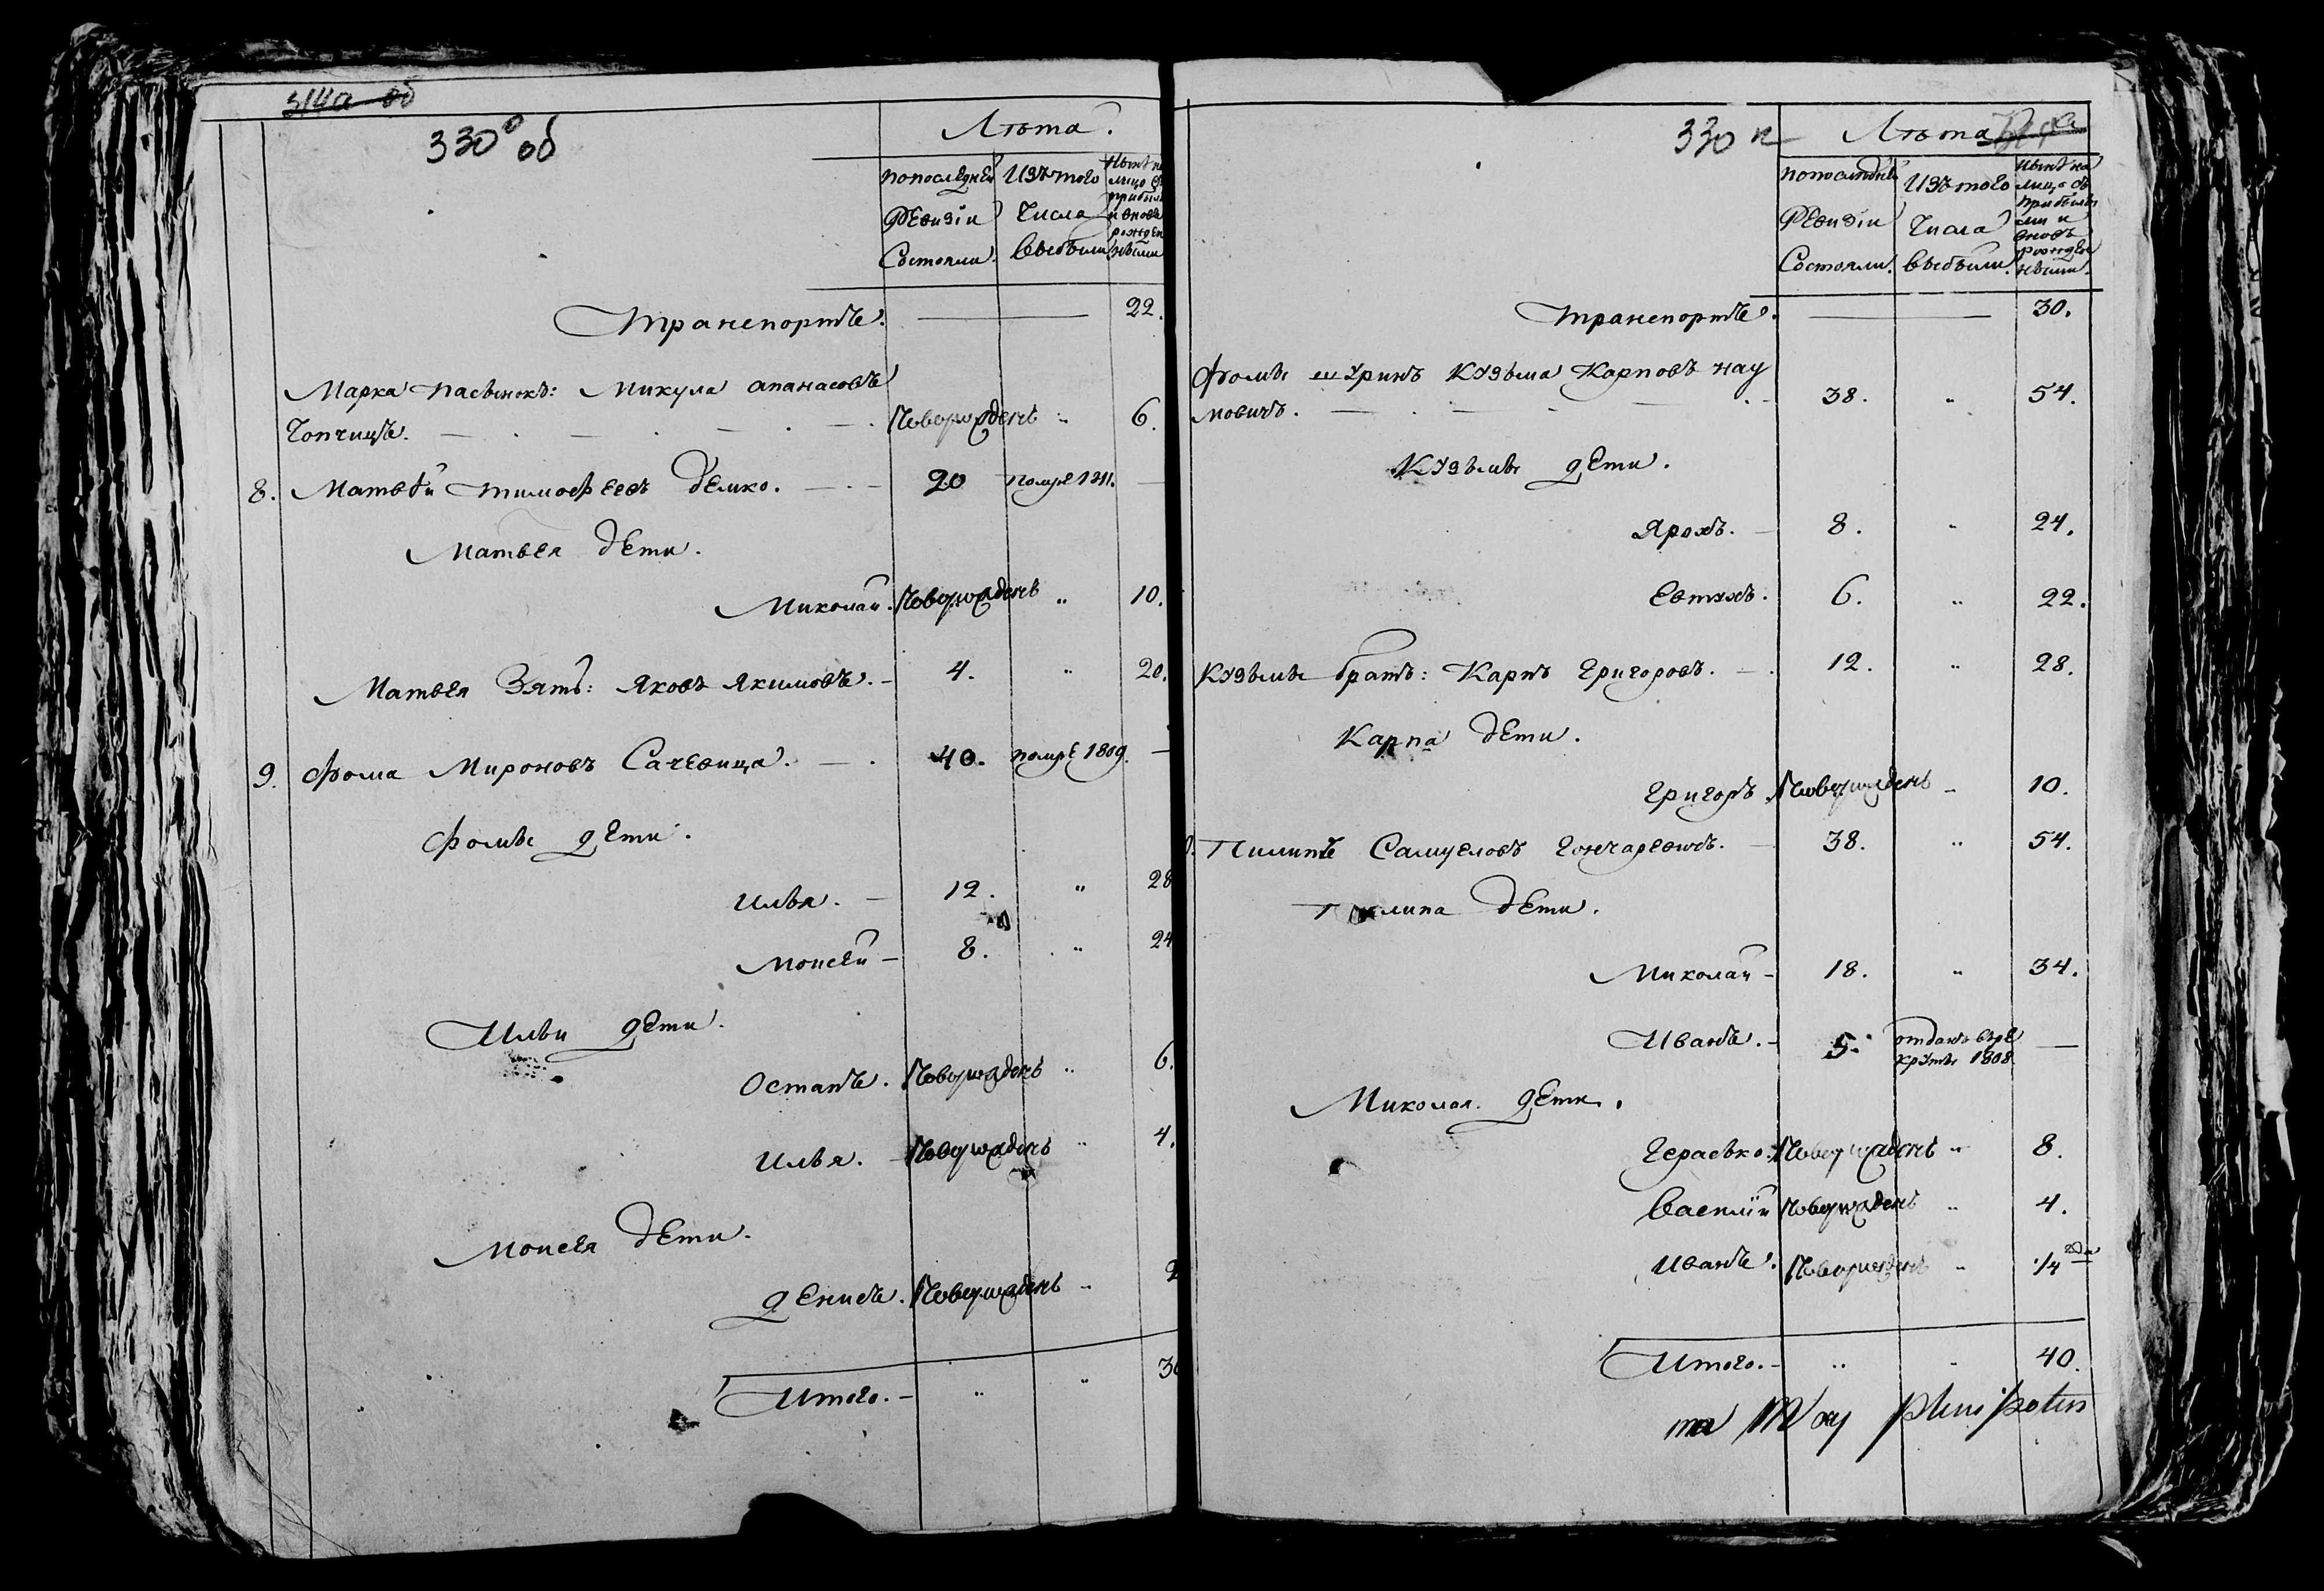 314а об
330 о об
Лѣта.
попоследней ревизіи состояли.
Изъ того числа выбыли
Нынѣ на лицо с прибыли и вновь рожден ными
Транспортъ. 22.
Марка пасынокъ: Микула апанасовъ
Гопчицъ. Новорожденъ " 6.
8. Матвѣй тимофеевъ Демко. 20 помре 1811. —
Матвея дети.
Миколай. Новорожденъ " 10.
Матвея Зять: Яковъ Якимовъ. 4. " 20.
9. Фома Мироновъ Сачевица. 40. помре 1809. —
Фомы дети.
Илья. 12. " 28
Моисей 8. " 24
Ильи дети.
Остапъ. Новорожденъ " 6.
Илья. Новорожденъ " 4.
Моисея дети.
Денисъ. Новорожденъ " 2
Итого. " " 30
330 п
Лѣта
попоследней ревизіи состояли.
Изъ того числа выбыли.
Нынѣ на лицо съ прибыли ми и вновь рожден ными.
Транспортъ. 30.
Фомы шуринъ Кузьма Карповъ нау
мовичъ. 38. " 54.
Кузьмы дети.
Ярохъ. 8. " 24.
Евтухъ. 6. " 22.
Кузьмы братъ: Карпъ Григоровъ. 12. " 28.
Карпа дети.
Григоръ. Новорожденъ " 10.
Пилипъ Самуеловъ Гончаревичъ. 38. " 54.
Пилипа дети.
Миколай 18. " 34.
Иванъ. 5. отданъ в ре круты 1808. —
Миколая дети.
Герасько. Новорожденъ " 8.
Василій Новорожденъ " 4.
Иванъ. Новорожденъ " 1/4 года
Итого. " " 40.